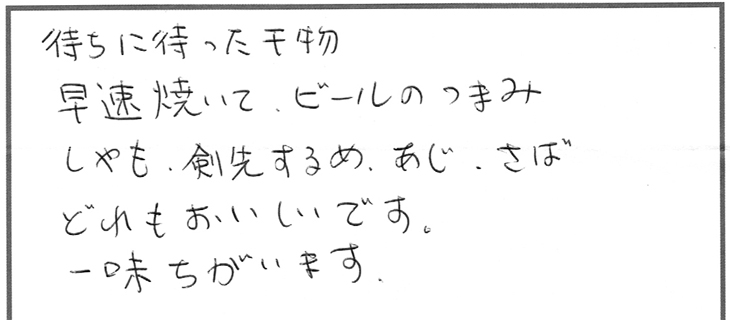 待ちに待った干物
早速焼いて、ビールのつまみ
しやも、剣先するめ、あじ、さば
どれもおいしいです。
一味ちがいます。